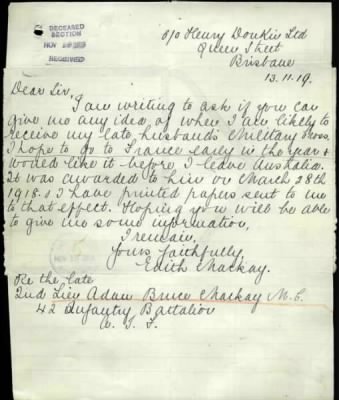 DECEASED
SECTION
NOV
RECEIVED
c/o Henry Donkin Ltd
Queen Street
Brisbane
13.11.19.
Dear Sir,
I am writing to ask if you can
give me any idea, of when I am likely to
receive my late husband's Military Cross.
I hope to go to France early in the year &
would like it before I leave Australia.
It was awarded to him on March 28th
1918. & I have printed papers sent to me
to that effect. Hoping you will be able
to give me some information,
I remain,
Yours faithfully,
Edith Mackay.
Re the late
2nd Lieu Adam Bruce Mackay M.C.
42 Infantry Battalion
A. I. F.